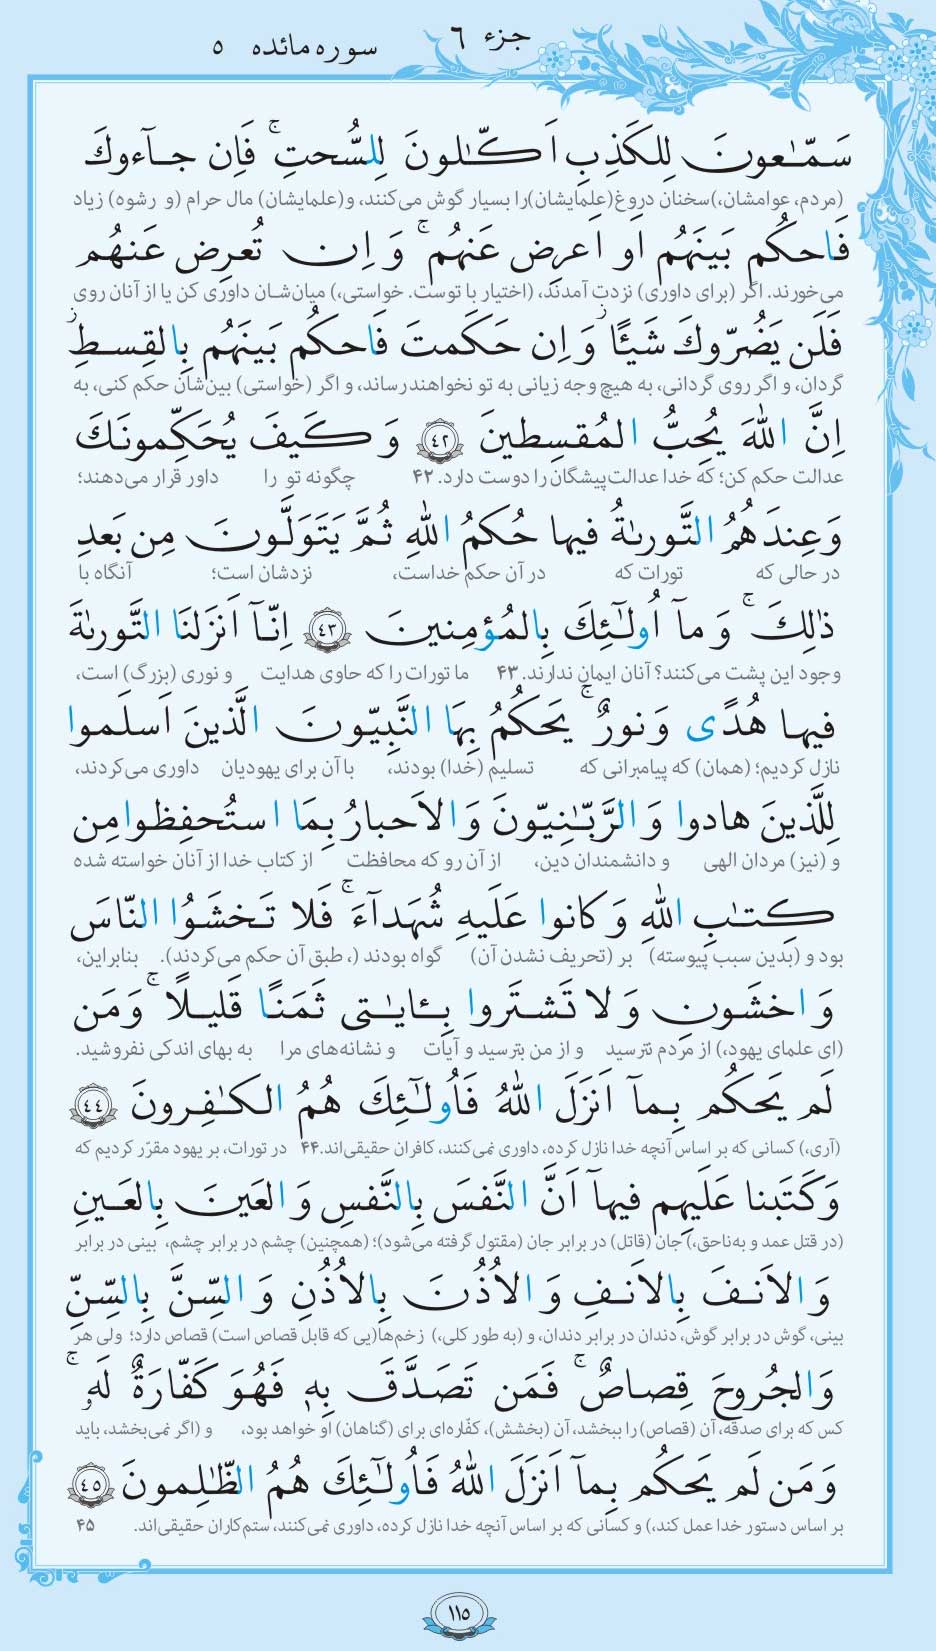 جزء ۶ سوره مائده ۵
سَمّٰعونَ لِلكَذِبِ اَكّٰلونَ لِلسُّحتِ ۚ فَاِن جآءوكَ
(مردم، عوامشان،)سخنان دروغ(علمایشان)را بسیار گوش می‌کنند، و(علمایشان) مال حرام (و رشوه) زیاد
فَاحكُم بَينَهُم اَو اَعرِض عَنهُم ۚ وَ اِن تُعرِض عَنهُم
می‌خورند. اگر (برای داوری) نزدت آمدند، (اختیار با توست. خواستی،) میان‌شان داوری کن یا از آنان روی
فَلَن يَضُرّوكَ شَيـًٔا ۖ وَ اِن حَكَمتَ فَاحكُم بَينَهُم بِالقِسطِ ۚ
گردان، و اگر روی گردانی، به هیچ وجه زیانی به تو نخواهند رساند، و اگر (خواستی) بین‌شان حکم کنی، به
اِنَّ اللّٰهَ يُحِبُّ المُقسِطينَ ﴿٤٢﴾ وَ كَيفَ يُحَكِّمونَكَ
عدالت حکم کن؛ که خدا عدالت‌پیشگان را دوست دارد. ۴۲ چگونه تو را داور قرار می‌دهند؛
وَعِندَهُمُ التَّورىٰةُ فيها حُكمُ اللّٰهِ ثُمَّ يَتَوَلَّونَ مِن بَعدِ
در حالی که تورات که در آن حکم خداست، نزدشان است؛ آنگاه با
ذٰلِكَ ۚ وَ مآ اُولٰٓئِكَ بِالمُؤمِنينَ ﴿٤٣﴾ اِنّآ اَنزَلنَا التَّورىٰةَ
وجود این پشت می‌کنند؟ آنان ایمان ندارند. ۴۳ ما تورات را که حاوی هدایت و نوری (بزرگ) است،
فيها هُدًى وَ نورٌ ۚ يَحكُمُ بِهَا النَّبِيّونَ الَّذينَ اَسلَموا
نازل کردیم؛ (همان) که پیامبرانی که تسلیم (خدا) بودند، با آن برای یهودیان داوری می‌کردند،
لِلَّذينَ هادوا وَ الرَّبّٰنِيّونَ وَ الاَحبارُ بِمَا استُحفِظوا مِن
و (نیز) مردان الهی و دانشمندان دین، از آن رو که محافظت از کتاب خدا از آنان خواسته شده
كِتٰبِ اللّٰهِ وَ كانوا عَلَيهِ شُهَدآءَ ۚ فَلا تَخشَوُا النّاسَ
بود و (بدین سبب پیوسته) بر (تحریف نشدن آن) گواه بودند (، طبق آن حکم می‌کردند). بنابراین،
وَ اخشَونِ وَ لا تَشتَروا بِـٔايٰتى ثَمَنًا قَليلًا ۚ وَ مَن
(ای علمای یهود،) از مردم نترسید و از من بترسید و آیات و نشانه‌های مرا به بهای اندکی نفروشید.
لَم يَحكُم بِمآ اَنزَلَ اللّٰهُ فَاُولٰٓئِكَ هُمُ الكٰفِرونَ ﴿٤٤﴾
(آری،) کسانی که بر اساس آنچه خدا نازل کرده، داوری نمی‌کنند، کافران حقیقی‌اند. ۴۴ در تورات، بر یهود مقرّر کردیم که
وَ كَتَبنا عَلَيهِم فيهآ اَنَّ النَّفسَ بِالنَّفسِ وَ العَينَ بِالعَينِ
(در قتل عمد و به‌ناحق،) جان (قاتل) در برابر جان (مقتول گرفته می‌شود)؛ (همچنین) چشم در برابر چشم، بینی در برابر
وَ الاَنفَ بِالاَنفِ وَ الاُذُنَ بِالاُذُنِ وَ السِّنَّ بِالسِّنِّ
بینی، گوش در برابر گوش، دندان در برابر دندان، و (به طور کلی،) زخم‌ها(یی که قابل قصاص است) قصاص دارد؛ ولی هر
وَ الجُروحَ قِصاصٌ ۚ فَمَن تَصَدَّقَ بِهٖ فَهُوَ كَفّارَةٌ لَهٗ ۚ
کس که برای صدقه، آن (قصاص) را ببخشد، آن (بخشش)، کفّاره‌ای برای (گناهان) او خواهد بود، و (اگر نمی‌بخشد، باید
وَ مَن لَم يَحكُم بِمآ اَنزَلَ اللّٰهُ فَاُولٰٓئِكَ هُمُ الظّٰلِمونَ ﴿٤٥﴾
بر اساس دستور خدا عمل کند،) و کسانی که بر اساس آنچه خدا نازل کرده، داوری نمی‌کنند، ستم‌کاران حقیقی‌اند. ۴۵
۱۱۵